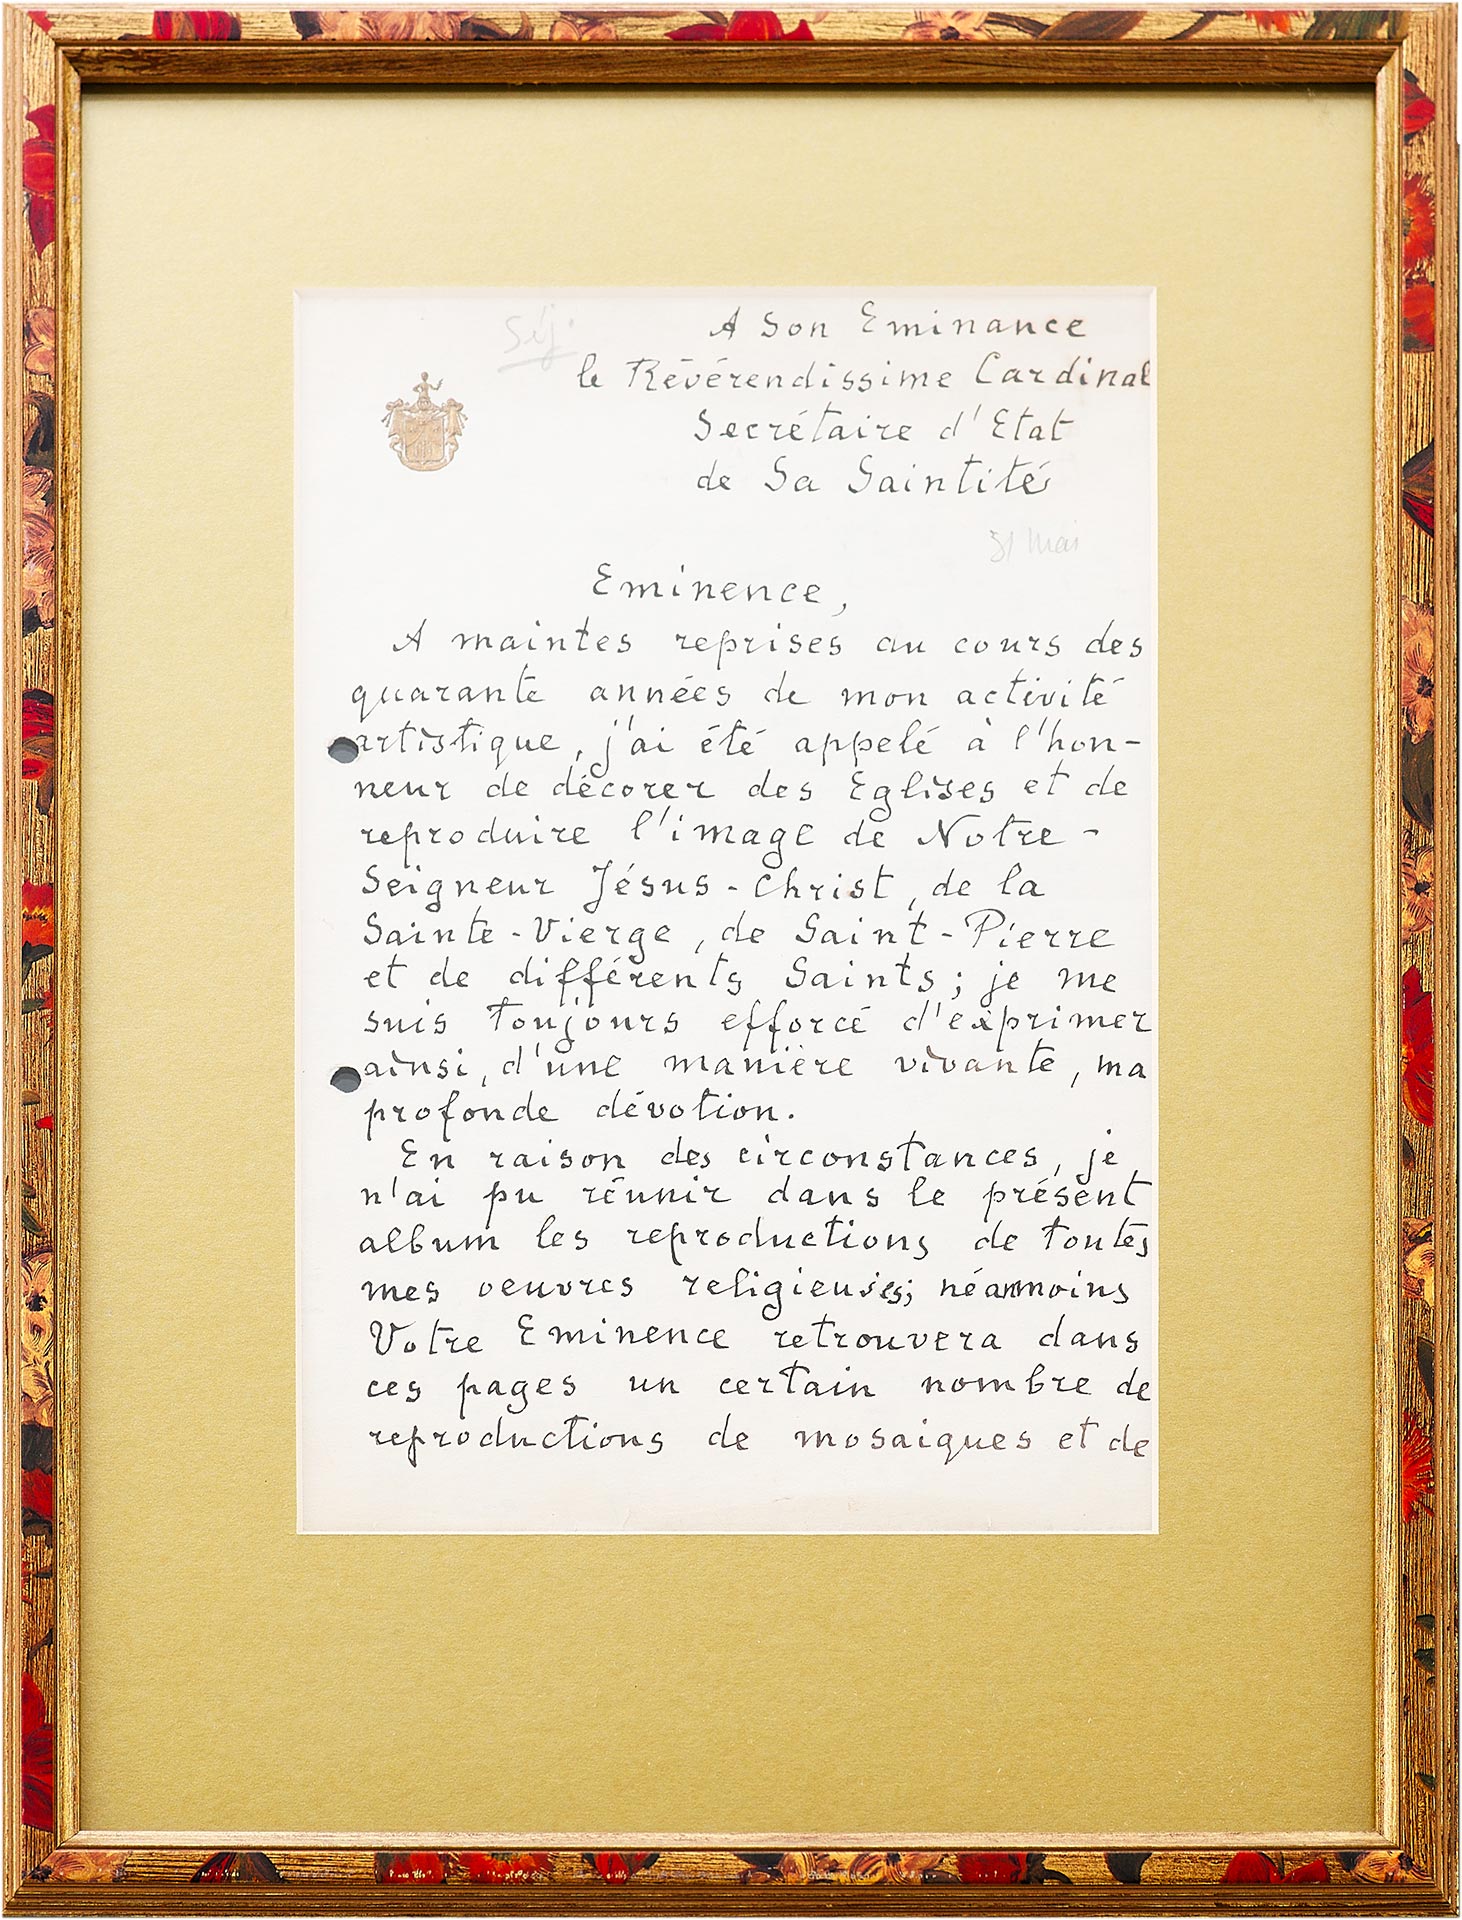 Séj.
A Son Eminance
le Révérendissime Cardinal
Secrétaire d'Etat
de Sa Saintité
31 Mai
Eminence,
A maintes reprises au cours des
quarante années de mon activité
artistique, j'ai été appelé à l'hon-
neur de décorer des Eglises et de
reproduire l'image de Notre-
Seigneur Jésus-Christ, de la
Sainte-Vierge, de Saint-Pierre
et de différents Saints; je me
suis toujours efforcé d'exprimer
ainsi, d'une manière vivante, ma
profonde dévotion.
En raison des circonstances, je
n'ai pu réunir dans le présent
album les reproductions de toutes
mes oeuvres religieuses; néanmoins
Votre Eminence retrouvera dans
ces pages un certain nombre de
reproductions de mosaiques et de